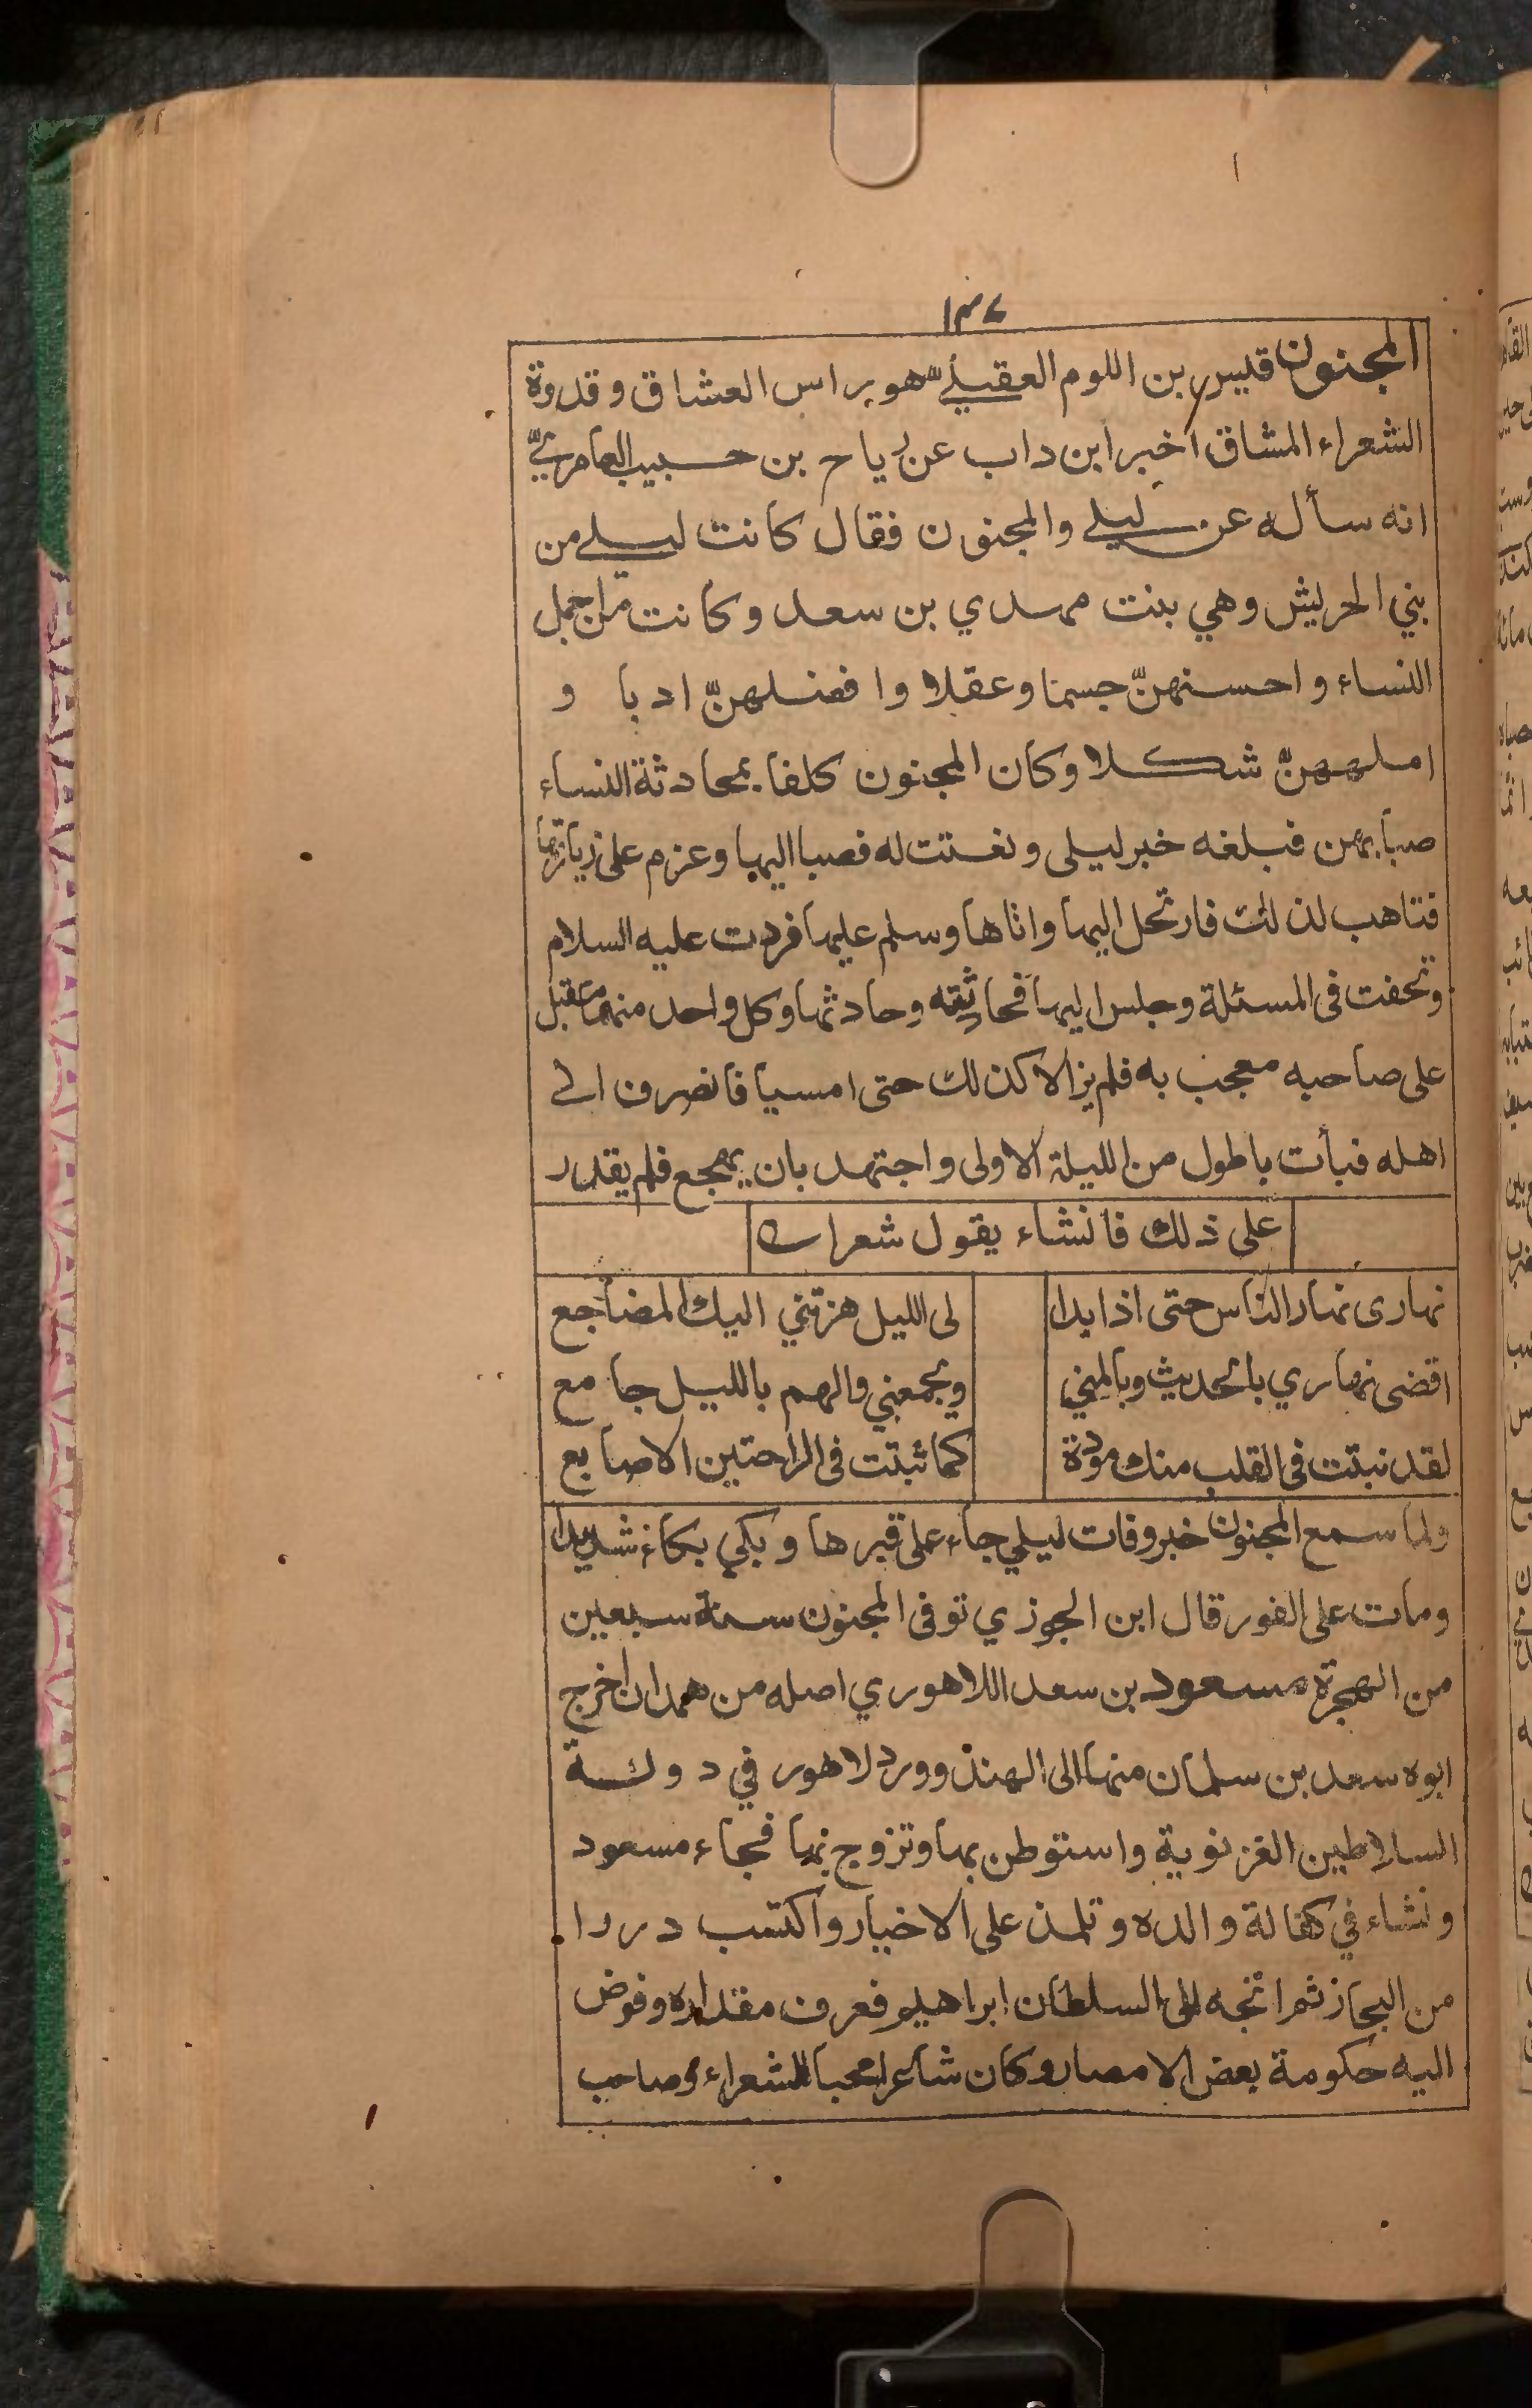 ١٣٧
المجنون قيس بن اللوم العقيليّ هو راس العشاق وقدوة
الشعراء المشاق اخبر ابن داب عن رياح بن حبيب العامريّ
انه سأله عن ليلى والمجنون فقال كانت ليلى من
بني الحريش وهي بنت مهدي بن سعد وكانت من اجمل
النساء واحسنهنّ جسما وعقلا وافضلهنّ ادبا و
املههنّ شكلا وكان المجنون كلفا بمحادثة النساء
صبا بهن فبلغه خبر ليلى ونعتت له فصبا اليها وعزم على زيارتها
فتاهب لذلك فارتحل اليها واتاها وسلم عليها فردت عليه السلام
وتحفت فى المسئلة وجلس اليها فحادثته وحادثها وكل واحد منهما مقبل
على صاحبه معجب به فلم يزالا كذلك حتى امسيا فانصرف الى
اهله فبأت باطول من الليلة الاولى واجتهد بان يهجع فلم يقدر
على ذلك فانشاء يقول شعرا
نهارى نهار الناس حتى اذا بدا لى الليل هزتني اليك المضاجع
اقضى نهاري بالحديث وبالمني ويجمعني والهم بالليل جامع
لقد نبتت فى القلب منك مودة كما ثبتت فى الراحتين الاصابع
ولما سمع المجنون خبر وفات ليلي جاء على قبرها وبكي بكاء شديدا
ومات على الفور قال ابن الجوزي توفى المجنون سنة سبعين
من الهجرة مسعود بن سعد اللاهوري اصله من همدان اخرج
ابوه سعد بن سلمان منها الى الهند وورد لاهور في دولة
السلاطين الغزنوية واستوطن بها وتزوج بها فجاء مسعود
ونشاء في كفالة والده وتلمذ على الاخيار واكتسب دررا
من البحار ثم اتجه الى السلطان ابراهيم فعرف مقداره وفوض
اليه حكومة بعض الامصار وكان شاعرا محبا للشعراء وصاحب